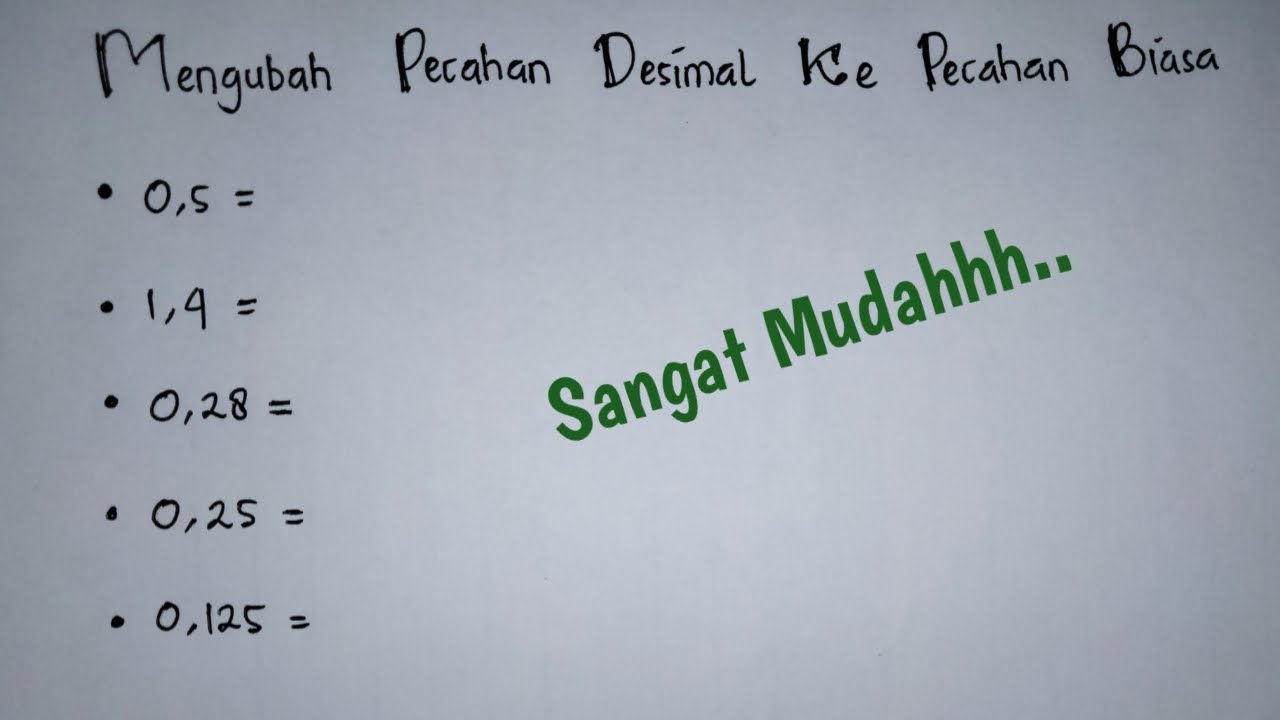 Mengubah Pecahan Desimal Ke Pecahan Biasa
• 0,5 =
• 1,4 =
• 0,28 =
• 0,25 =
• 0,125 =
Sangat Mudahhh..